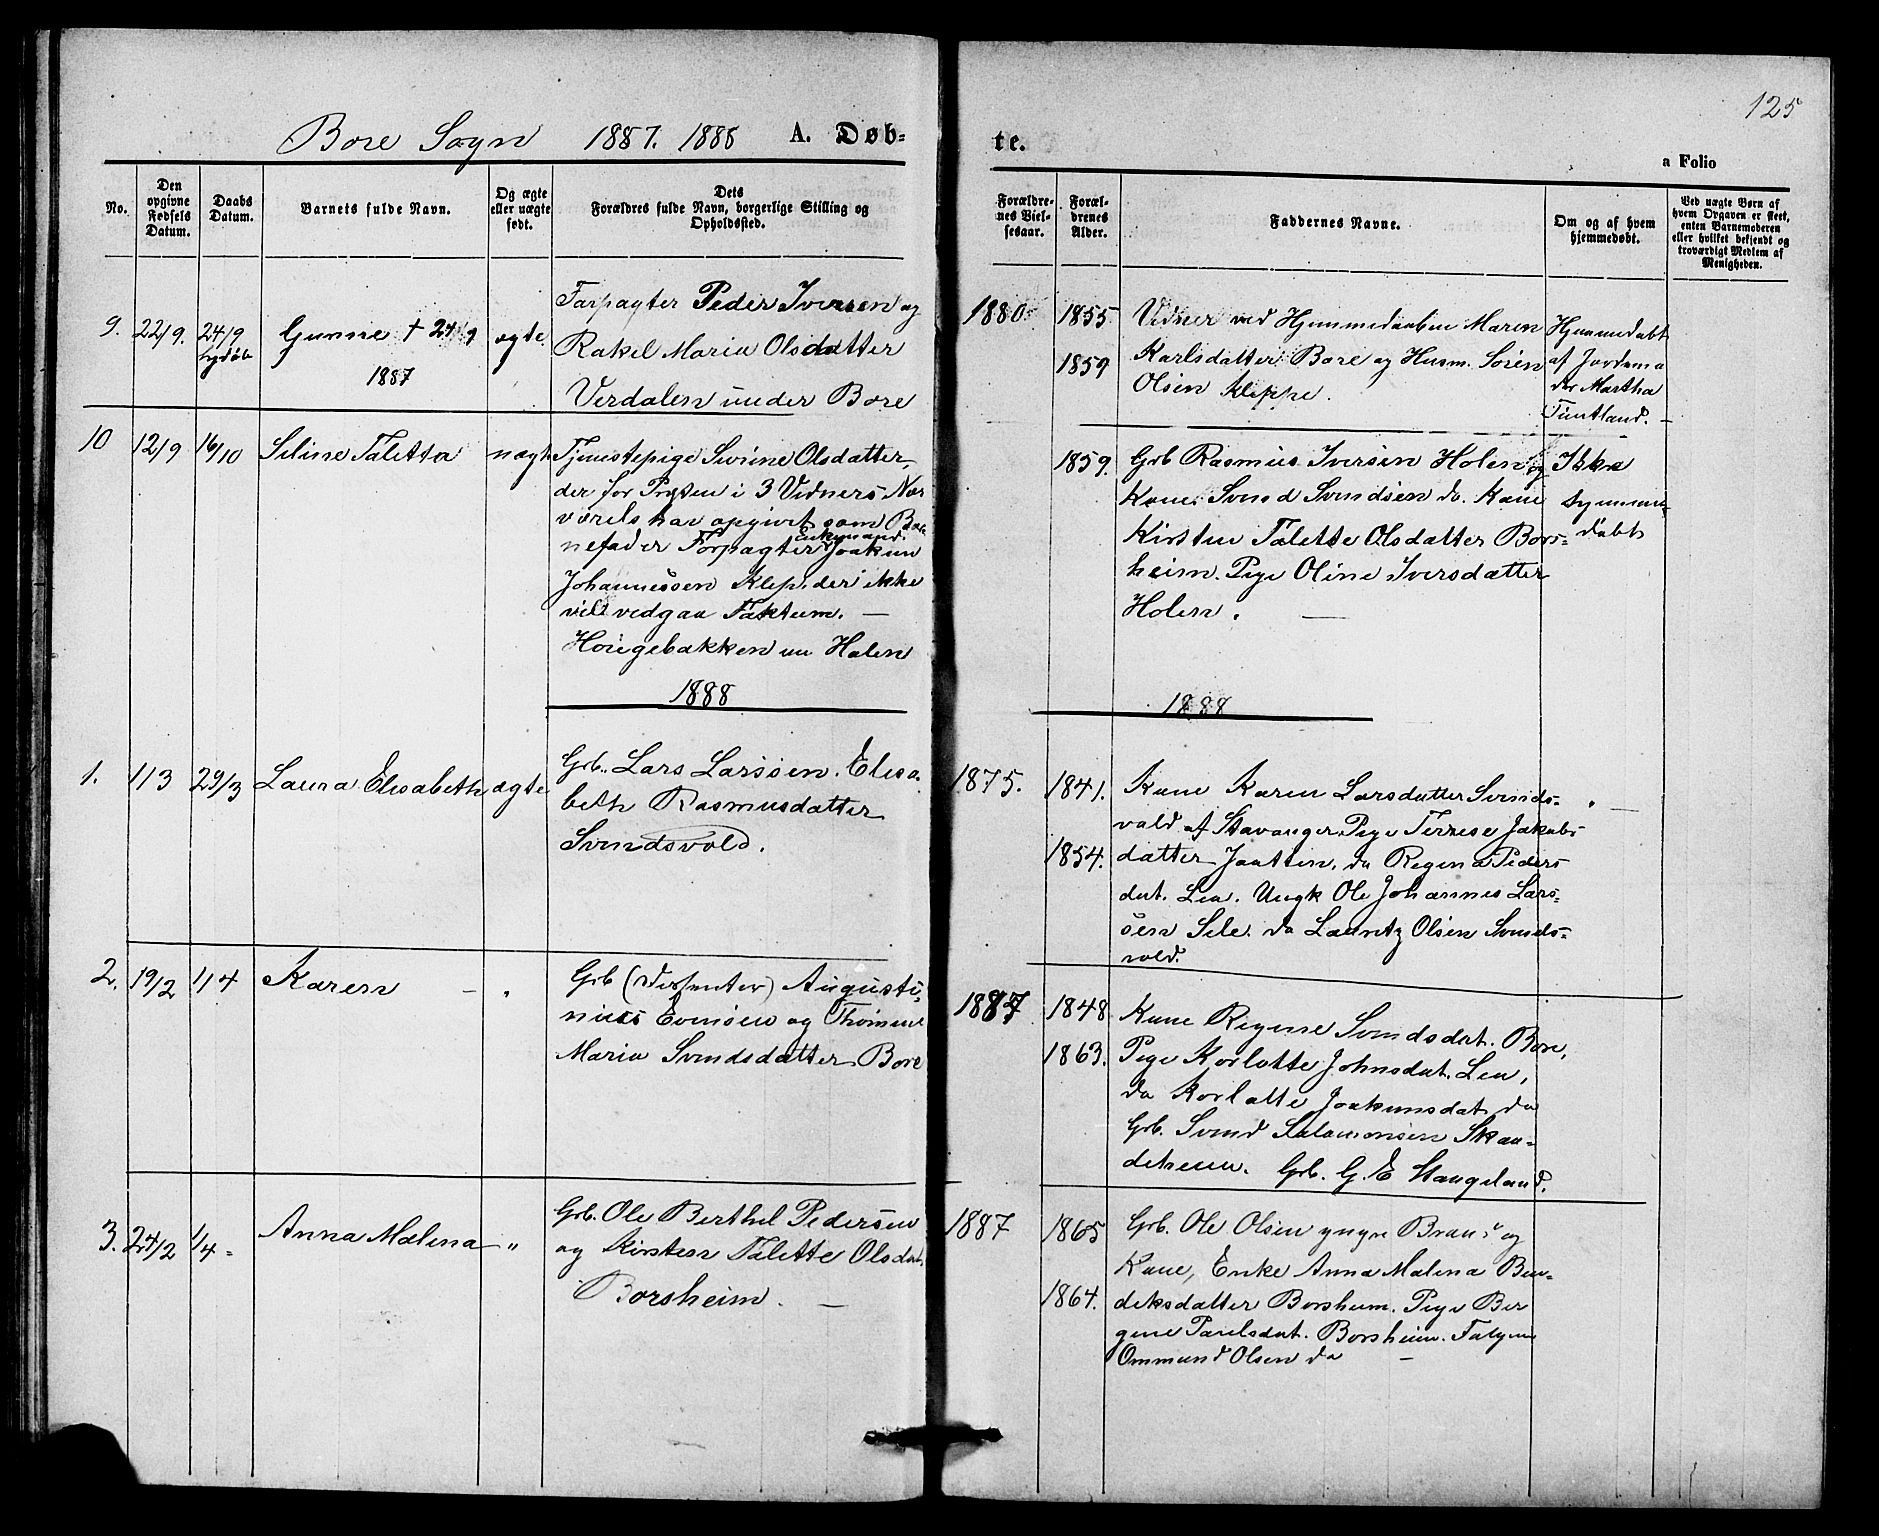 125
Bore Sogn 1887. 1888 A. Døb-
te.
a Folio
No.
Den opgivne Fødsels Datum.
Daabs Datum.
Barnets fulde Navn.
Og ægte eller uægte født.
Dets
Forældres fulde Navn, borgerlige Stilling og
Opholdssted.
Forældre-
nes Viel-
sesaar.
Foræl-
drenes
Alder.
Faddernes Navne.
Om og af hvem
hjemmedøbt.
Ved uægte Børn af
hvem Opgaven er skeet,
enten Barnemoderen
eller hvilket bekjendt og
troværdigt Medlem af
Menigheden.
9. 22/9. 24/9 Gunne + 24/9 1887 ægte
Forpagter Peder Iversen og
Rakel Maria Olsdatter
Verdalen under Bore
1880 1855 1859
Vidner ved Hjemmedaaben Maren
Karlsdatter Bore og Husm. Sören
Olsen Kleppe.
Hjemmedøbt
af Jordemo
der Martha
Tuntland. -
10 12/9 16/10 Seline Taletta uægte
Tjenestepige Surine Olsdatter,
der for Præsten i 3 Vidners Nær
værels har opgivet som Bar
nefader Forpagter Enkemand Joakim
Johannessen Klep, der ikke
vil vedgaa Faktum. -
Hoigebakken un Holen
1859.
Grb Rasmus Iversen Holen og
Kone. Svend Svendsen do. Kone
Kirsten Talette Olsdatter Bors-
heim. Pige Oline Iversdatter
Holen. -
Ikke
hjemme-
døbt
1888
1888
1. 1/3 29/3 Laura Elisabeth ægte
Grb. Lars Larssen. Elisa-
beth Rasmusdatter
Svendsvold.
1875. 1841. 1854.
Kone Karen Larsdatter Svends-
vold af Stavanger, Pige Terrese Jakobs
datter Jaatten, do Regina Peders
dat. Lea. Ungk Ole Johannes Lars-
sen Sele. do Lauritz Olsen Svends-
vold.
" -
2. 19/2 1/4 Karen - "
Grb (Dissenter) Augusti-
nius Evensen og Thomine
Maria Svendsdatter Bore
1887 1848 1863.
Kone Regine Svendsdat. Bore,
Pige Korlotte Johnsdat. Lea,
do Korlotte Joakimsdat do
Grb. Svend Salamonsen Skan-
deheien. Grb. G. E Stangeland.
3. 24/2 1/4 - Anna Malena "
Grb. Ole Berthel Pedersen
og Kirsten Talette Olsdat.
Borsheim. -
1887 1865 1864.
Grb. Ole Olsen yngre Braut og
Kone, Enke Anna Malena Ben-
diksdatter Borsheim. Pige Ber
gine Paulsdat. Borsheim.
Ommund Olsen do -